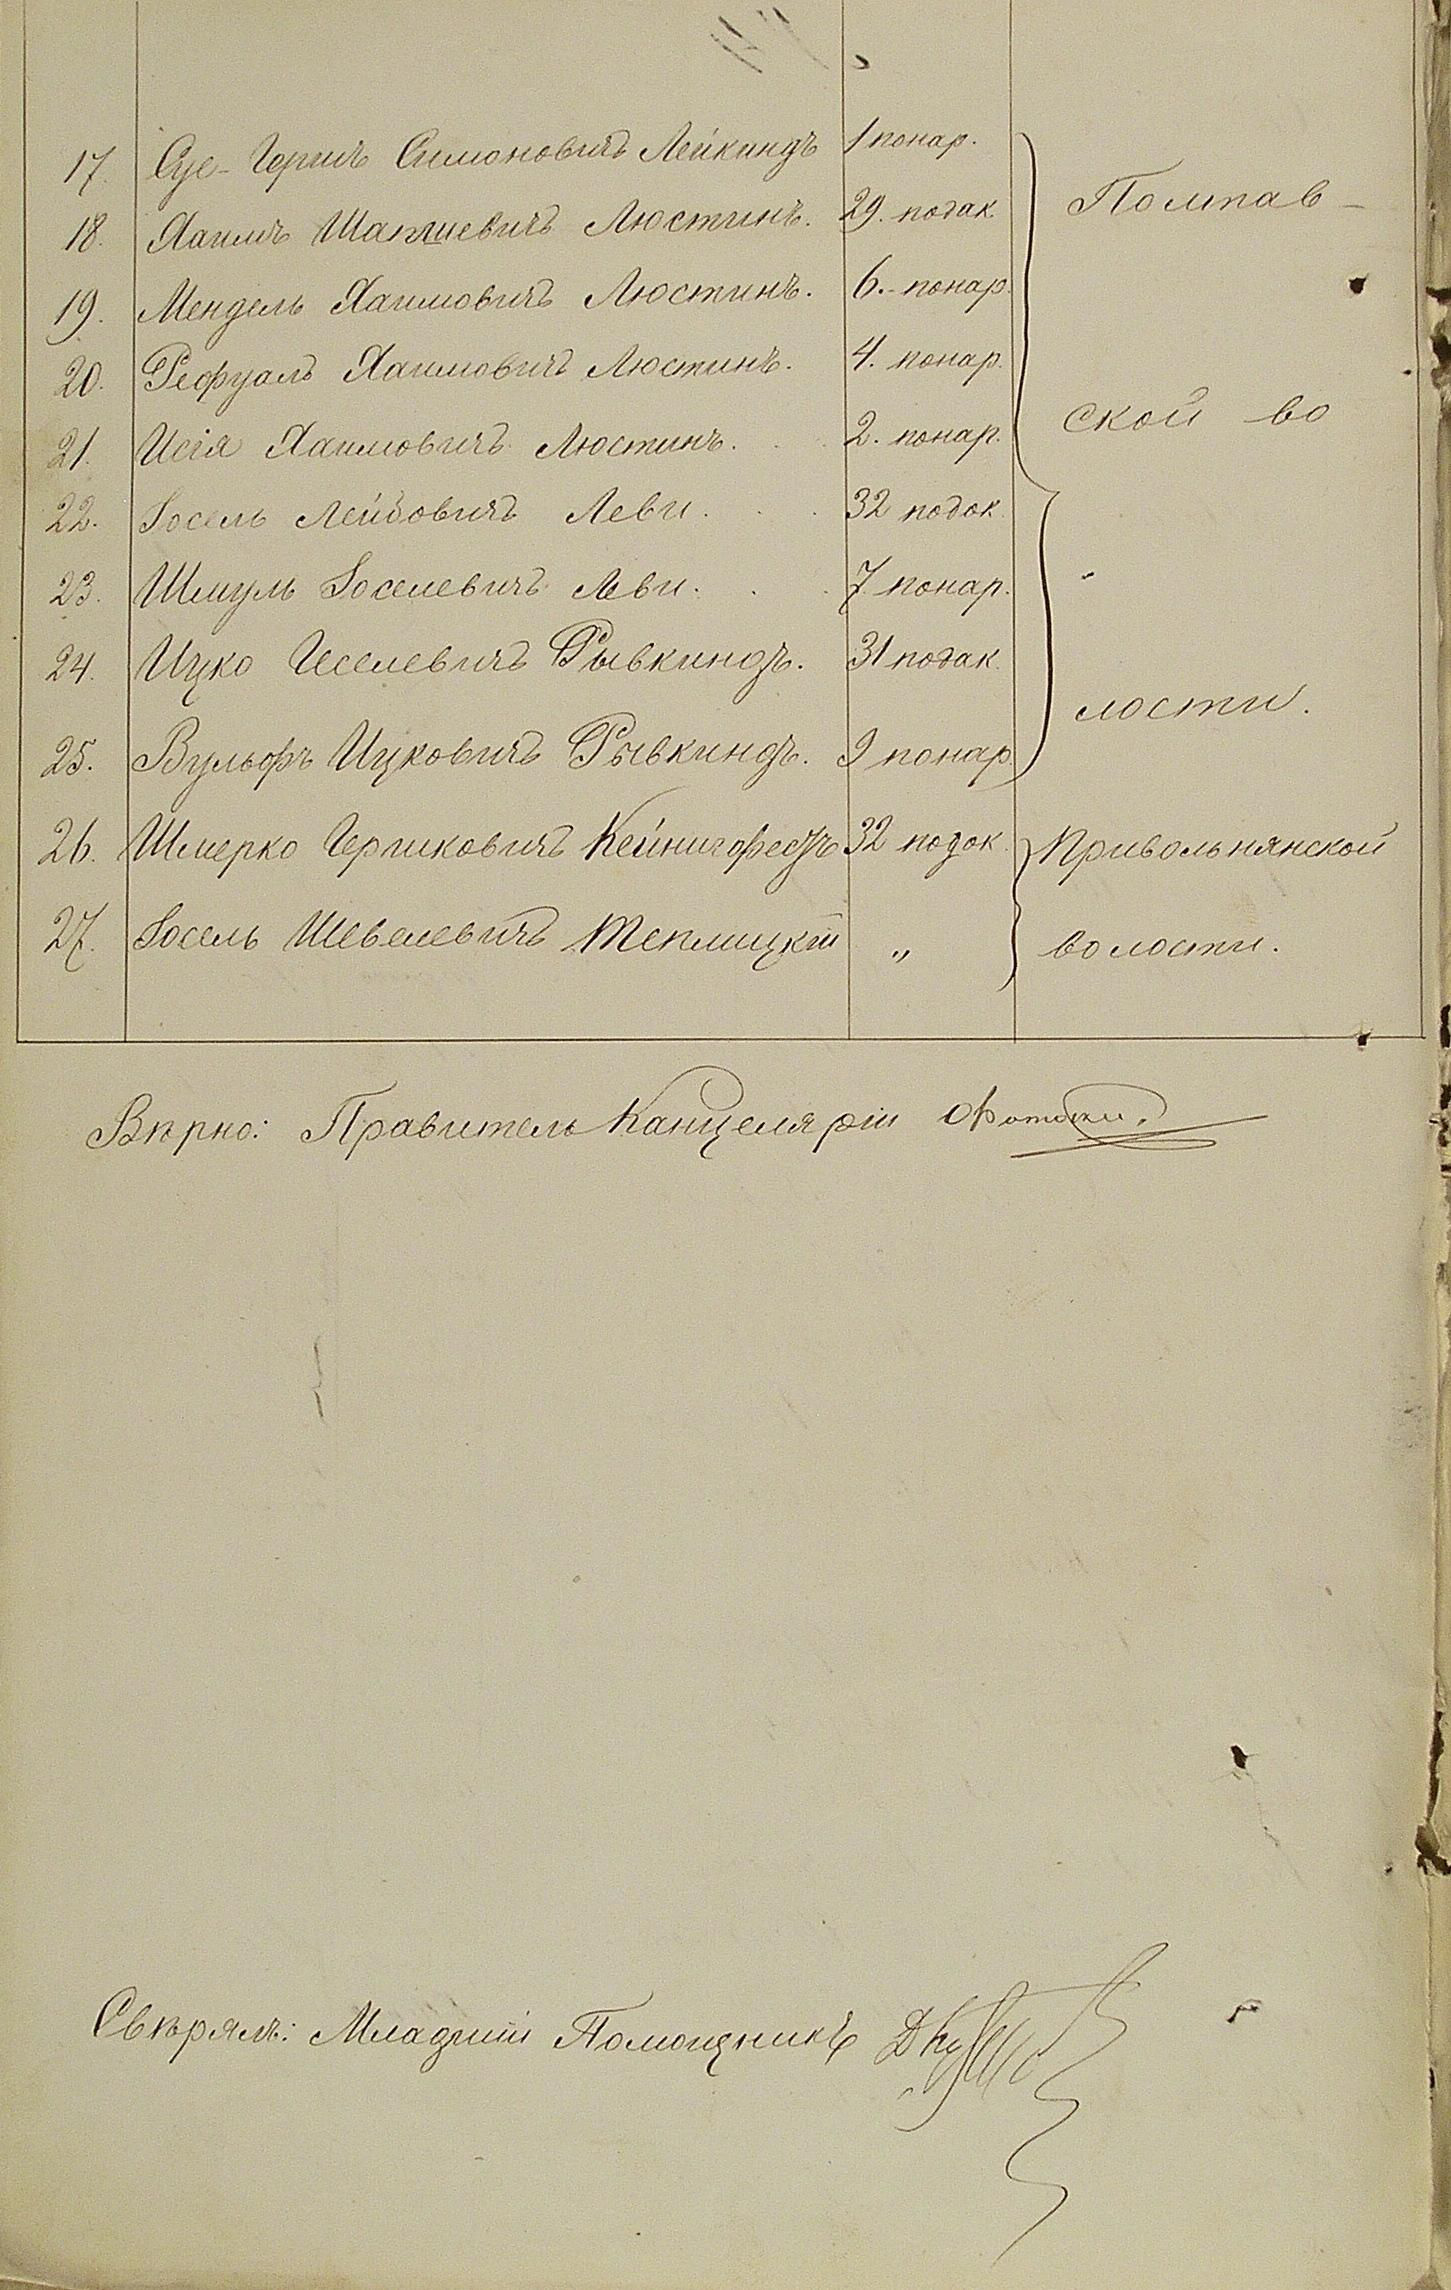 17. Суе-Гершъ Симоновичъ Лейкиндъ 1 понар.
18. Хаимъ Шапшевичъ Люстинъ. 29. подак. Полтав-
19. Мендель Хаимовичъ Люстинъ. 6. понар.
20. Рефуалъ Хаимовичъ Люстинъ. 4. понар.
21. Исія Хаимовичъ Люстинъ. 2. понар. ской во
22. Іосель Лейбовичъ Леви. 32 подок.
23. Шмуль Іоселевичъ Леви. 7 понар.
24. Ицко Іеселевичъ Рывкиндъ. 31 подак. лости.
25. Вульфъ Ицковичъ Рывкиндъ. 9 понар.
26. Шмерко Гершковичъ Кейнигфестъ 32 подок. Привольнянской
27. Іосель Шевелевичъ Теплицкій „ волости.
Вѣрно: Правитель Канцеляріи
Свѣрялъ: Младшій Помощникъ